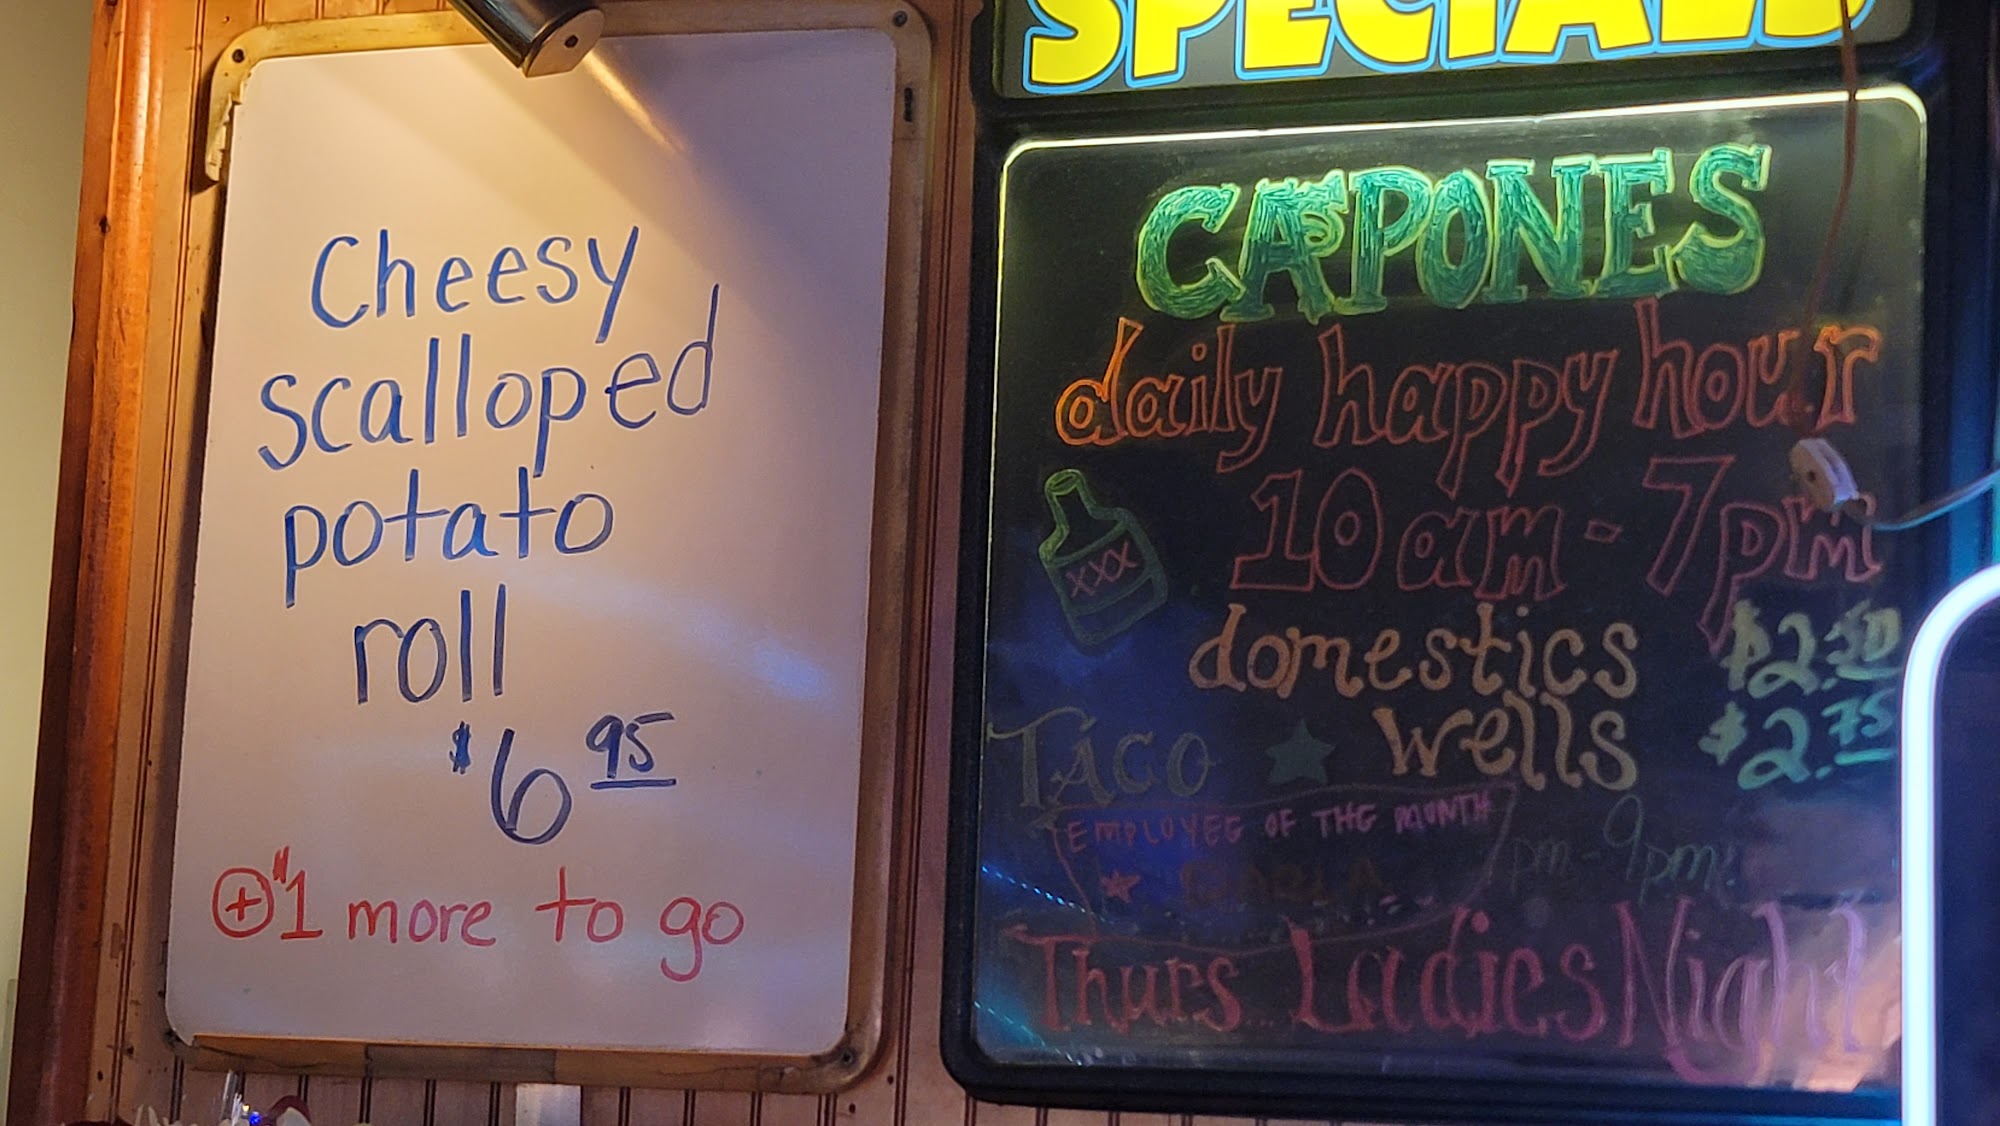 Cheesy
scalloped
potato
roll
$6 95
+ $1 more to go
SPECIALS
CAPONES
daily happy hour
10am - 7pm
XXX
domestics $2.50
wells $2.75
TACO
EMPLOYEE OF THE MONTH
7pm-9pm!
Thurs... Ladies Night